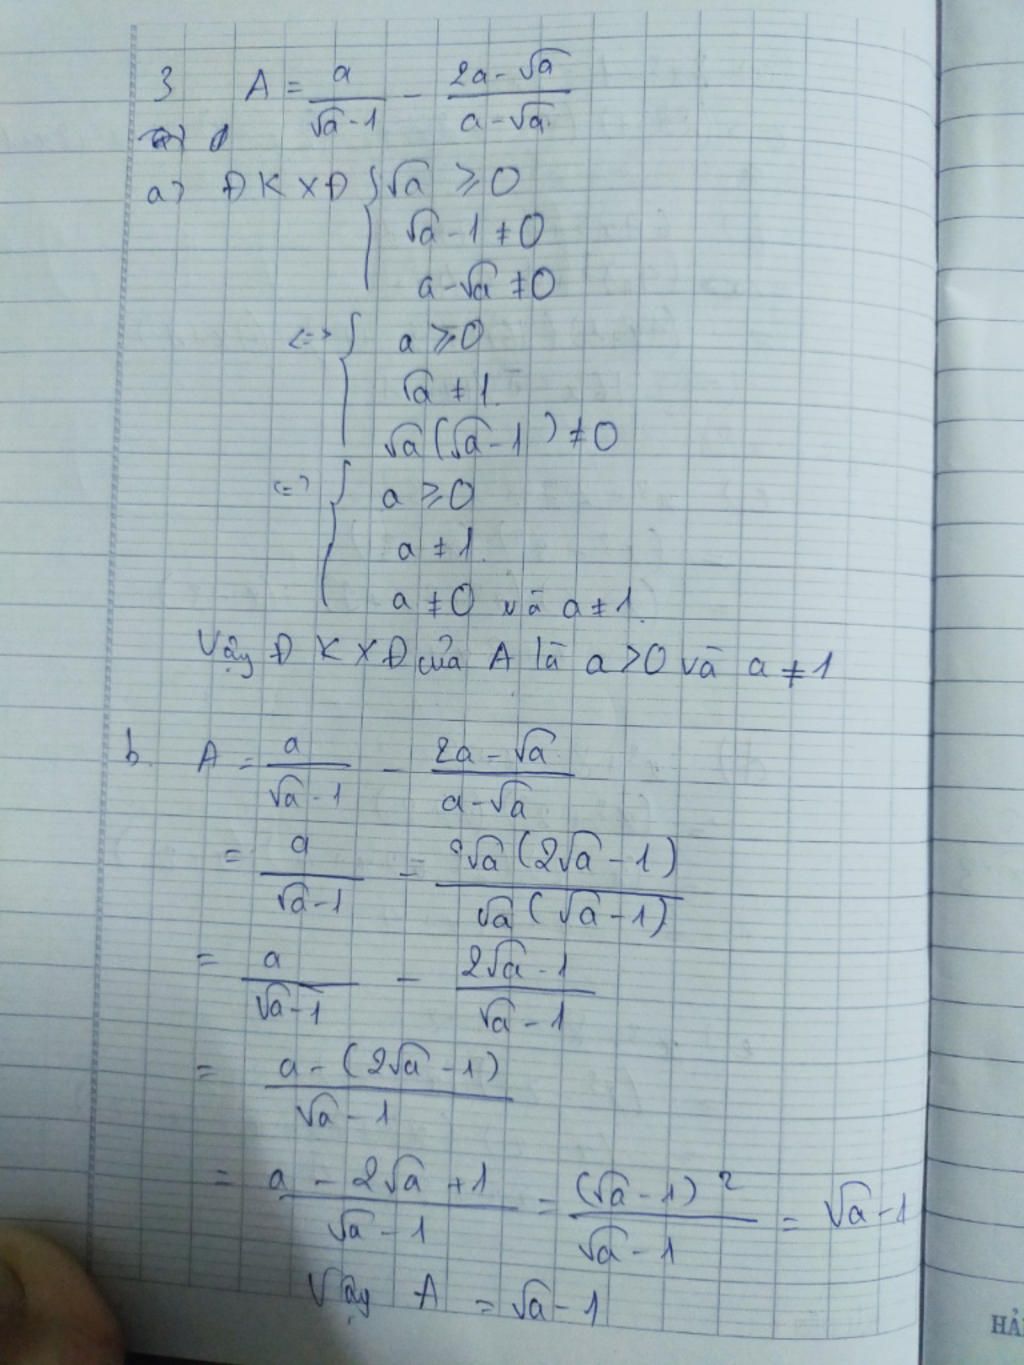 3 A = a/(√a - 1) - (2a - √a)/(a - √a)
a> ĐKXĐ { √a ≥ 0
√a - 1 ≠ 0
a - √a ≠ 0
<=> { a ≥ 0
√a ≠ 1
√a(√a - 1) ≠ 0
<=> { a ≥ 0
a ≠ 1
a ≠ 0 và a ≠ 1
Vậy ĐKXĐ của A là a > 0 và a ≠ 1
b. A = a/(√a - 1) - (2a - √a)/(a - √a)
= a/(√a - 1) - √a(2√a - 1)/(√a(√a - 1))
= a/(√a - 1) - (2√a - 1)/(√a - 1)
= (a - (2√a - 1))/(√a - 1)
= (a - 2√a + 1)/(√a - 1) = (√a - 1)²/(√a - 1) = √a - 1
Vậy A = √a - 1